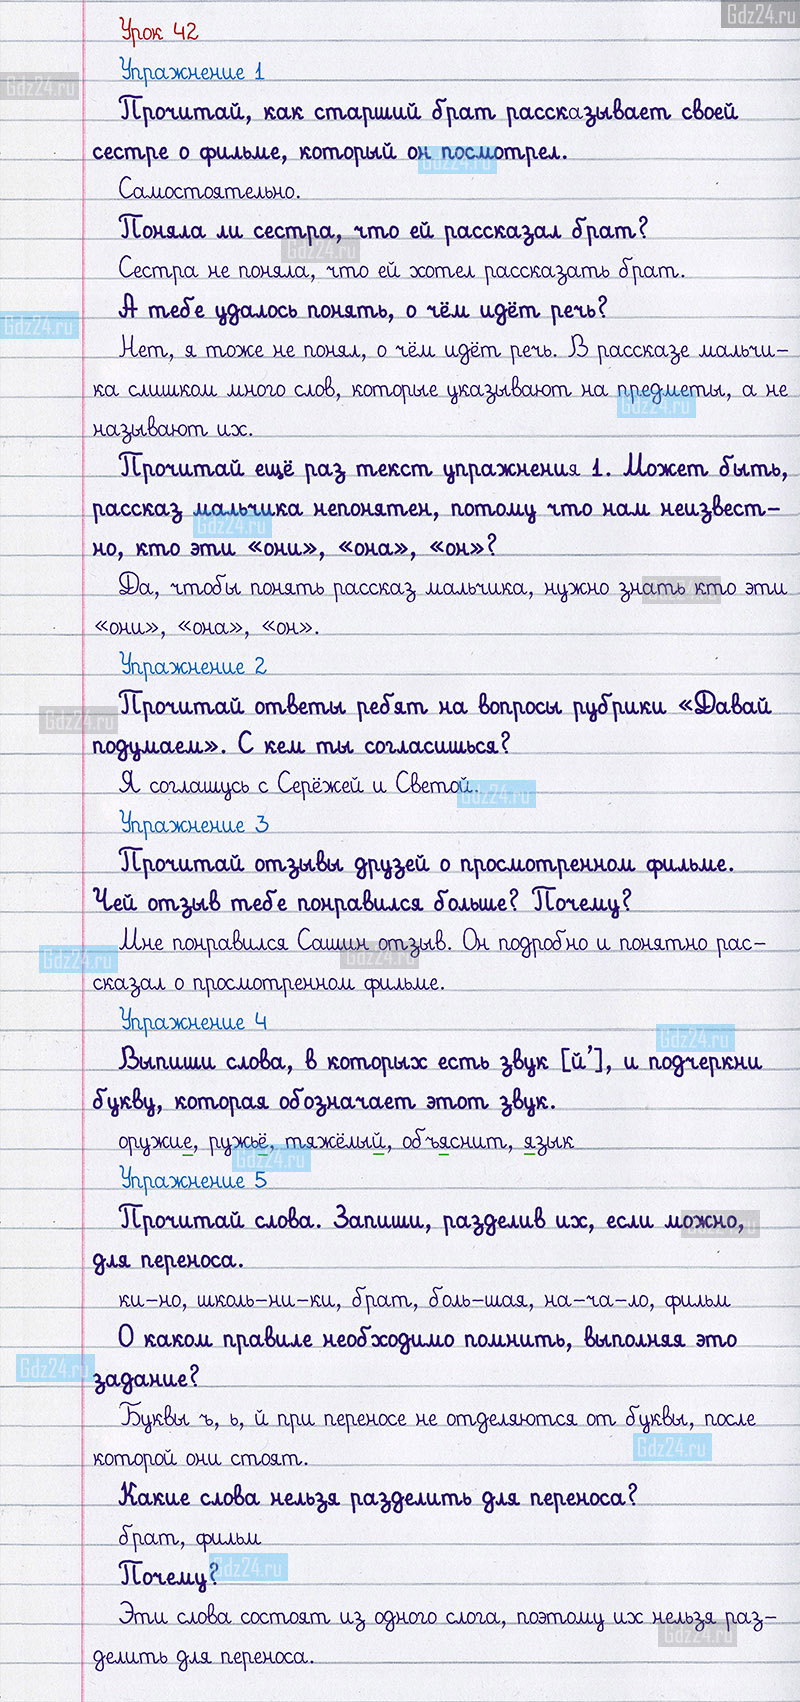 Gdz24.ru
Урок 42
Упражнение 1
Gdz24.ru
Прочитай, как старший брат рассказывает своей
сестре о фильме, который он посмотрел.
Gdz24.ru
Самостоятельно.
Поняла ли сестра, что ей рассказал брат?
Gdz24.ru
Сестра не поняла, что ей хотел рассказать брат.
А тебе удалось понять, о чём идёт речь?
Gdz24.ru
Нет, я тоже не понял, о чём идёт речь. В рассказе мальчи-
ка слишком много слов, которые указывают на предметы, а не
Gdz24.ru
называют их.
Прочитай ещё раз текст упражнения 1. Может быть,
рассказ мальчика непонятен, потому что нам неизвест-
Gdz24.ru
но, кто эти «они», «она», «он»?
Да, чтобы понять рассказ мальчика, нужно знать кто эти
Gdz24.ru
«они», «она», «он».
Упражнение 2
Прочитай ответы ребят на вопросы рубрики «Давай
Gdz24.ru
подумаем». С кем ты согласишься?
Я соглашусь с Серёжей и Светой.
Gdz24.ru
Упражнение 3
Прочитай отзывы друзей о просмотренном фильме.
Чей отзыв тебе понравился больше? Почему?
Мне понравился Сашин отзыв. Он подробно и понятно рас-
Gdz24.ru
Gdz24.ru
сказал о просмотренном фильме.
Упражнение 4
Gdz24.ru
Выпиши слова, в которых есть звук [й'], и подчеркни
букву, которая обозначает этот звук.
оружие, ружьё, тяжёлый, объяснит, язык
Gdz24.ru
Упражнение 5
Прочитай слова. Запиши, разделив их, если можно,
Gdz24.ru
для переноса.
ки-но, школь-ни-ки, брат, боль-шая, на-ча-ло, фильм
О каком правиле необходимо помнить, выполняя это
Gdz24.ru
задание?
Буквы ъ, ь, й при переносе не отделяются от буквы, после
Gdz24.ru
которой они стоят.
Какие слова нельзя разделить для переноса?
брат, фильм
Gdz24.ru
Почему?
Эти слова состоят из одного слога, поэтому их нельзя раз-
Gdz24.ru
делить для переноса.